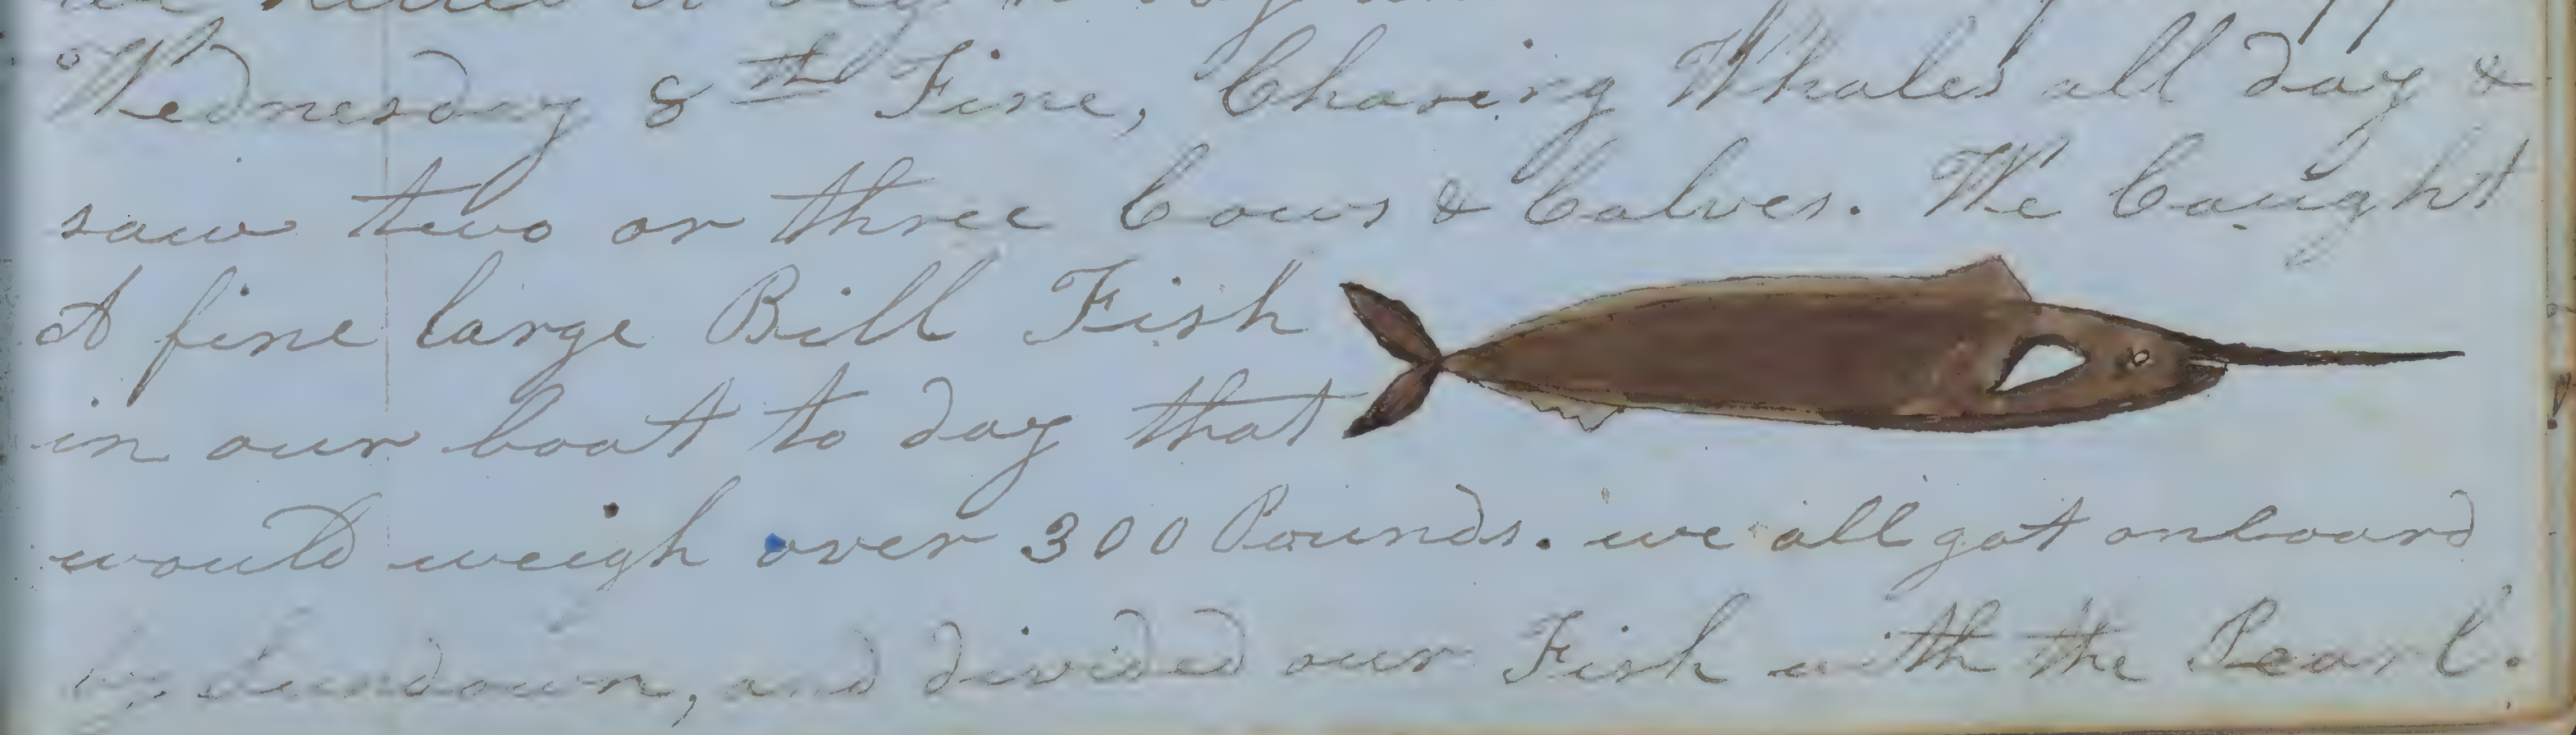 Wednesday 8th Fine, Chasing Whales all day &
saw two or three Cows & Calves. We Caught
A fine large Bill Fish
in our boat to day that
would weigh over 300 Pounds. we all got onboard
by Sundown, and divided our Fish with the Pearl.